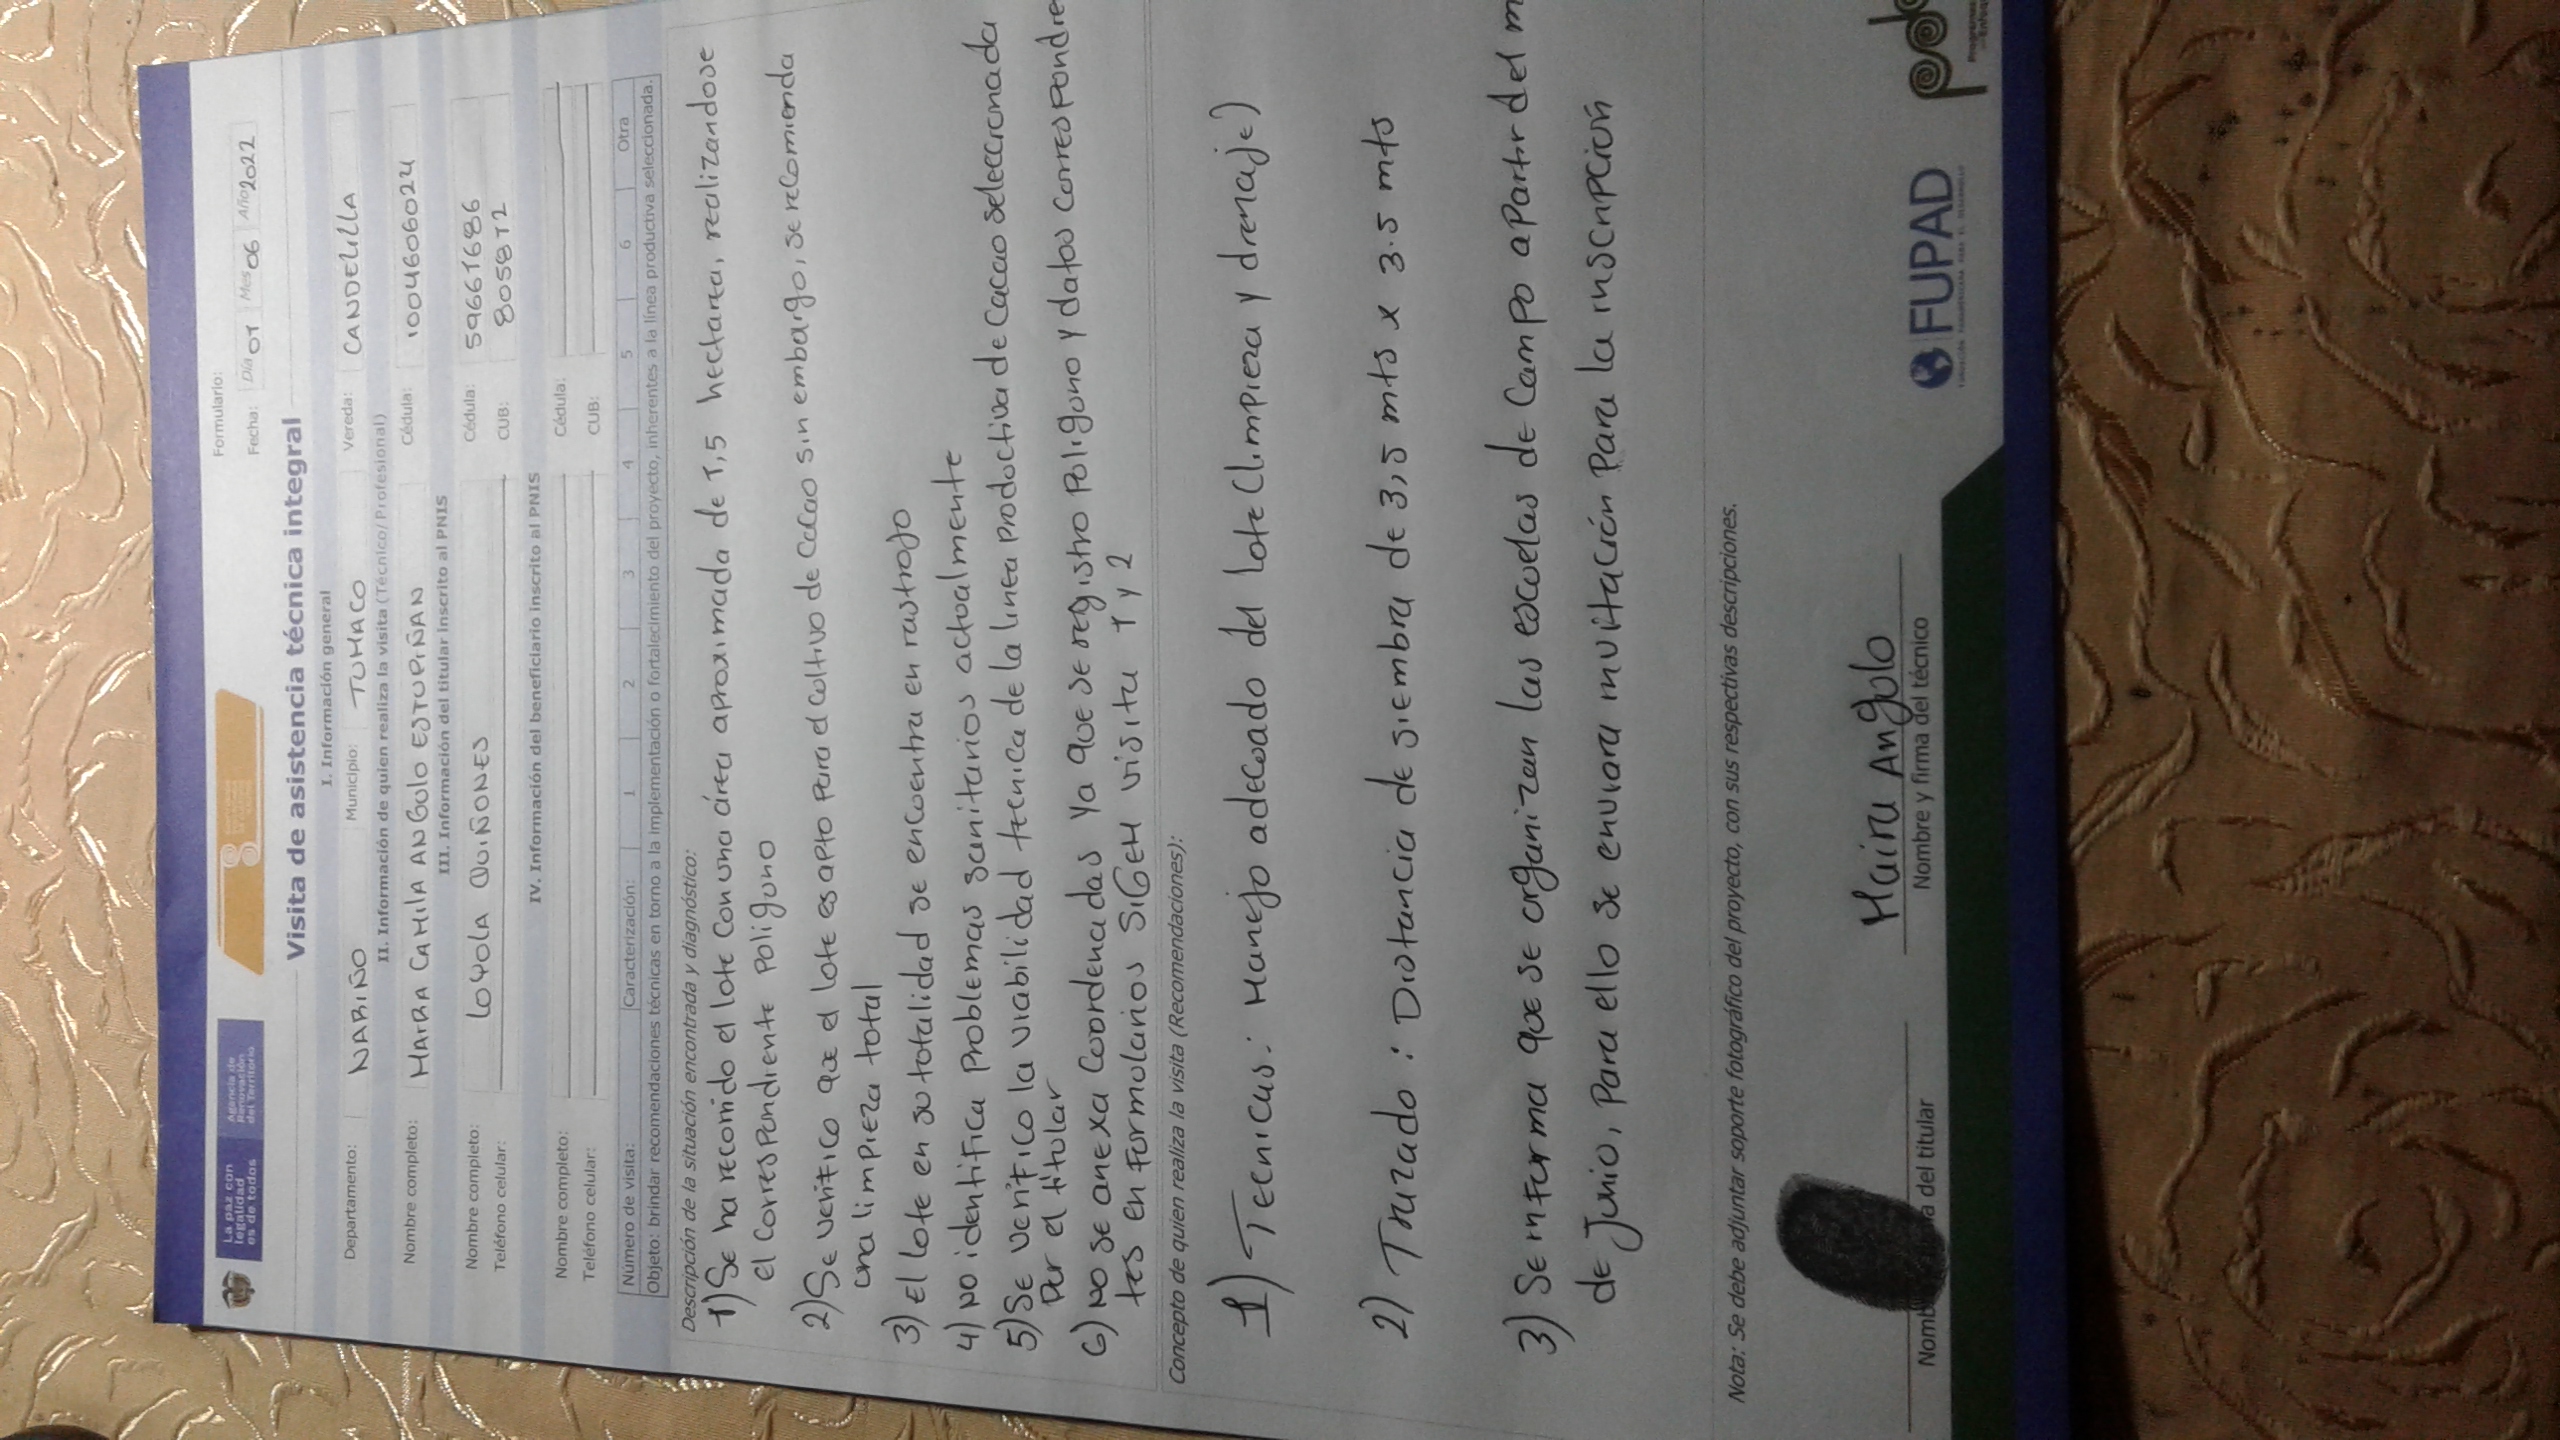 La paz con
legalidad
es de todos
Agencia de
Renovación
del Territorio
Formulario:
Fecha: Día 01 Mes 06 Año 2022
Visita de asistencia técnica integral
I. Información general
Departamento: NARIÑO Municipio: TUMACO Vereda: CANDELILLA
II. Información de quien realiza la visita (Técnico/Profesional)
Nombre completo: MAIRA CAMILA ANGULO ESTUPIÑAN Cédula: 1004606024
III. Información del titular inscrito al PNIS
Nombre completo: LOYOLA QUIÑONES Cédula: 59661686
Teléfono celular: CUB: 805812
IV. Información del beneficiario inscrito al PNIS
Nombre completo: Cédula:
Teléfono celular: CUB:
Número de visita: Caracterización: 1 2 3 4 5 6 Otra
Objeto: brindar recomendaciones técnicas en torno a la implementación o fortalecimiento del proyecto, inherentes a la línea productiva seleccionada.
Descripción de la situación encontrada y diagnóstico:
1) Se ha recorrido el lote con una área aproximada de 1,5 hectarea, realizandose
el correspondiente poligono
2) Se verifico que el lote es apto para el cultivo de cacao sin embargo, se recomienda
una limpieza total
3) El lote en su totalidad se encuentra en rastrojo
4) NO identifica problemas sanitarios actualmente
5) Se verifico la viabilidad tecnica de la linea productiva de cacao seleccionada
por el titular
6) NO se anexa coordenadas ya que se registro poligono y datos correspondie
tes en formularios SIGEM visita 1 y 2
Concepto de quien realiza la visita (Recomendaciones):
1) Tecnicas: Manejo adecuado del lote (limpieza y drenaje)
2) Trazado: Distancia de siembra de 3,5 mts x 3.5 mts
3) Se informa que se organizan las escuelas de campo apartir del m
de Junio, para ello se enviara invitación para la inscripción
Nota: Se debe adjuntar soporte fotográfico del proyecto, con sus respectivas descripciones.
Maira Angulo
Nomb del titular Nombre y firma del técnico
FUPAD